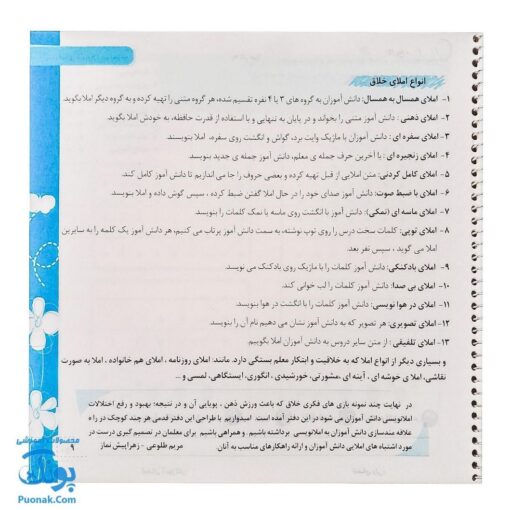 انواع املای خلاق
۱- املای همسال به همسال: دانش آموزان به گروه های ۳ یا ۴ نفره تقسیم شده، هر گروه متنی را تهیه کرده و به گروه دیگر املا بگوید.
۲- املای ذهنی: دانش آموز متنی را بخواند و در پایان به تنهایی و با استفاده از قدرت حافظه، به خودش املا بگوید.
۳- املای سفره ای: دانش آموزان با ماژیک وایت برد، گواش و انگشت روی سفره، املا بنویسند.
۴- املای زنجیره ای: با آخرین حرف جمله ی معلم، دانش آموز جمله ی جدید بنویسد.
۵- املای کامل کردنی: متن املایی از قبل تهیه کرده و بعضی حروف را جا می اندازیم تا دانش آموز کامل کند.
۶- املای با ضبط صوت: دانش آموز صدای خود را در حال املا گفتن ضبط کرده، سپس گوش داده و املا بنویسد.
۷- املای ماسه ای (نمکی): دانش آموز با انگشت روی ماسه یا نمک کلمات را بنویسد.
۸- املای توپی: کلمات سخت درس را روی توپ نوشته، به سمت دانش آموز پرتاب می کنیم، هر دانش آموز یک کلمه را به سایرین
املا می گوید، سپس نفر بعد.
۹- املای بادکنکی: دانش آموز کلمات را با ماژیک روی بادکنک می نویسد.
۱۰- املای بی صدا: دانش آموز کلمات را لب خوانی کند.
۱۱- املای در هوا نویسی: دانش آموز کلمات را با انگشت در هوا بنویسد.
۱۲- املای تصویری: هر تصویر که به دانش آموز نشان می دهیم نام آن را بنویسد.
۱۳- املای تلفیقی: از متن سایر دروس به دانش آموزان املا بگوییم.
و بسیاری دیگر از انواع املا که به خلاقیت و ابتکار معلم بستگی دارد. مانند: املای روزنامه، املای هم خانواده، املا به صورت
نقاشی، املای خوشه ای، آینه ای، مشورتی، خورشیدی، انگوری، ایستگاهی، لمسی و ...
در نهایت چند نمونه بازی های فکری خلاق که باعث ورزش ذهن، پویایی آن و در نتیجه؛ بهبود و رفع اختلالات
املانویسی دانش آموزان می شود در این دفتر آمده است. امیدواریم با طراحی این دفتر قدمی هر چند کوچک در راه
علاقه مندسازی دانش آموزان به املانویسی برداشته باشیم و همراهی باشیم برای معلمان در تصمیم گیری درست در
مورد اشتباه های املایی دانش آموزان و ارائه راهکارهای مناسب به آنان.
مریم طلوعی - زهرا پیش نماز
۹
محصولات آموزشی
پونک
Puonak.Com